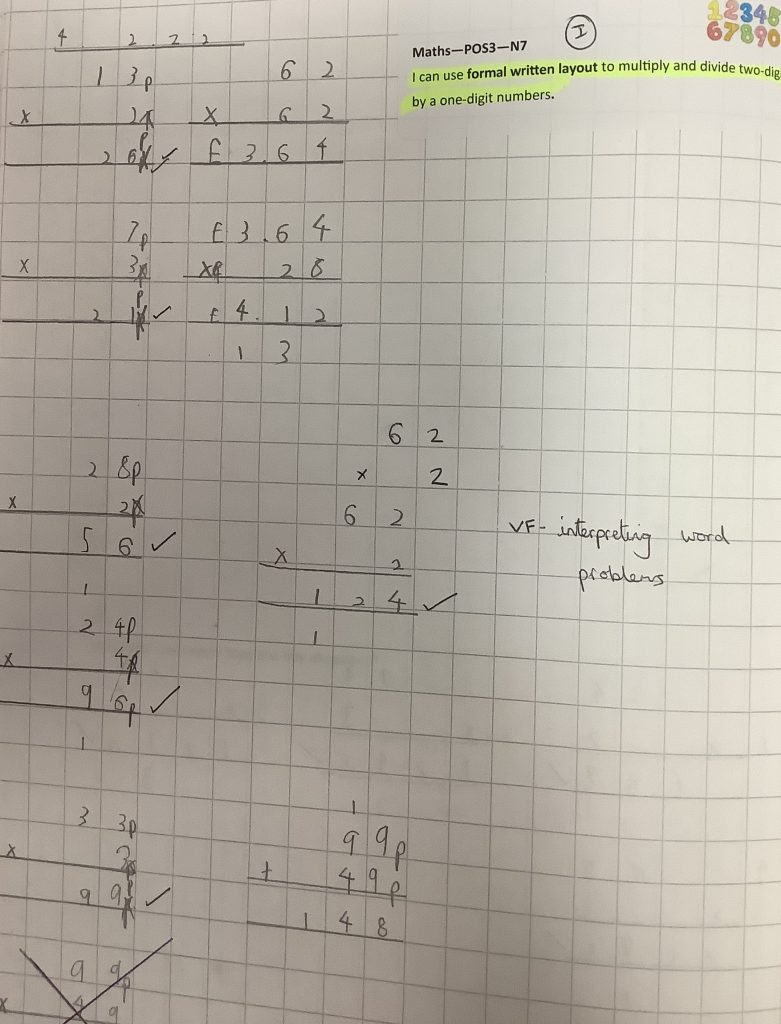 4 2.2.2
1 3p
x 2p
2 6p ✓
6 2
x 6 2
£ 3.6 4
Maths—POS3—N7
I
1 2 3 4 5
6 7 8 9 0
I can use formal written layout to multiply and divide two-dig
by a one-digit numbers.
7p
x 3p
2 1p ✓
£ 3.6 4
x 2 8
£ 4.1 2
1 3
2 8p
x 2
5 6 ✓
1
6 2
x 2
6 2
x 2
1 2 4 ✓
1
VF- interpreting word
problems
2 4p
x 4
9 6p ✓
1
3 3p
x 3
9 9p ✓
1
9 9p
+ 4 9p
1 4 8
9 9p
x 4 9